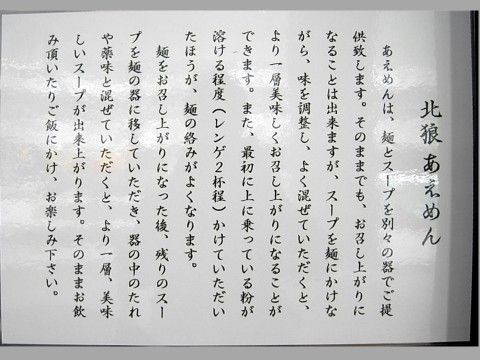 北狼あえめん
あえめんは、麺とスープを別々の器でご提
供致します。そのままでも、お召し上がりに
なることは出来ますが、スープを麺にかけな
がら、味を調整し、よく混ぜていただくと、
より一層美味しくお召し上がりになることが
できます。また、最初に上に乗っている粉が
溶ける程度(レンゲ2杯程)かけていただい
たほうが、麺の絡みがよくなります。
麺をお召し上がりになった後、残りのスー
プを麺の器に移していただき、器の中のたれ
や薬味と混ぜていただくと、より一層、美味
しいスープが出来上がります。そのままお飲
み頂いたりご飯にかけ、お楽しみ下さい。